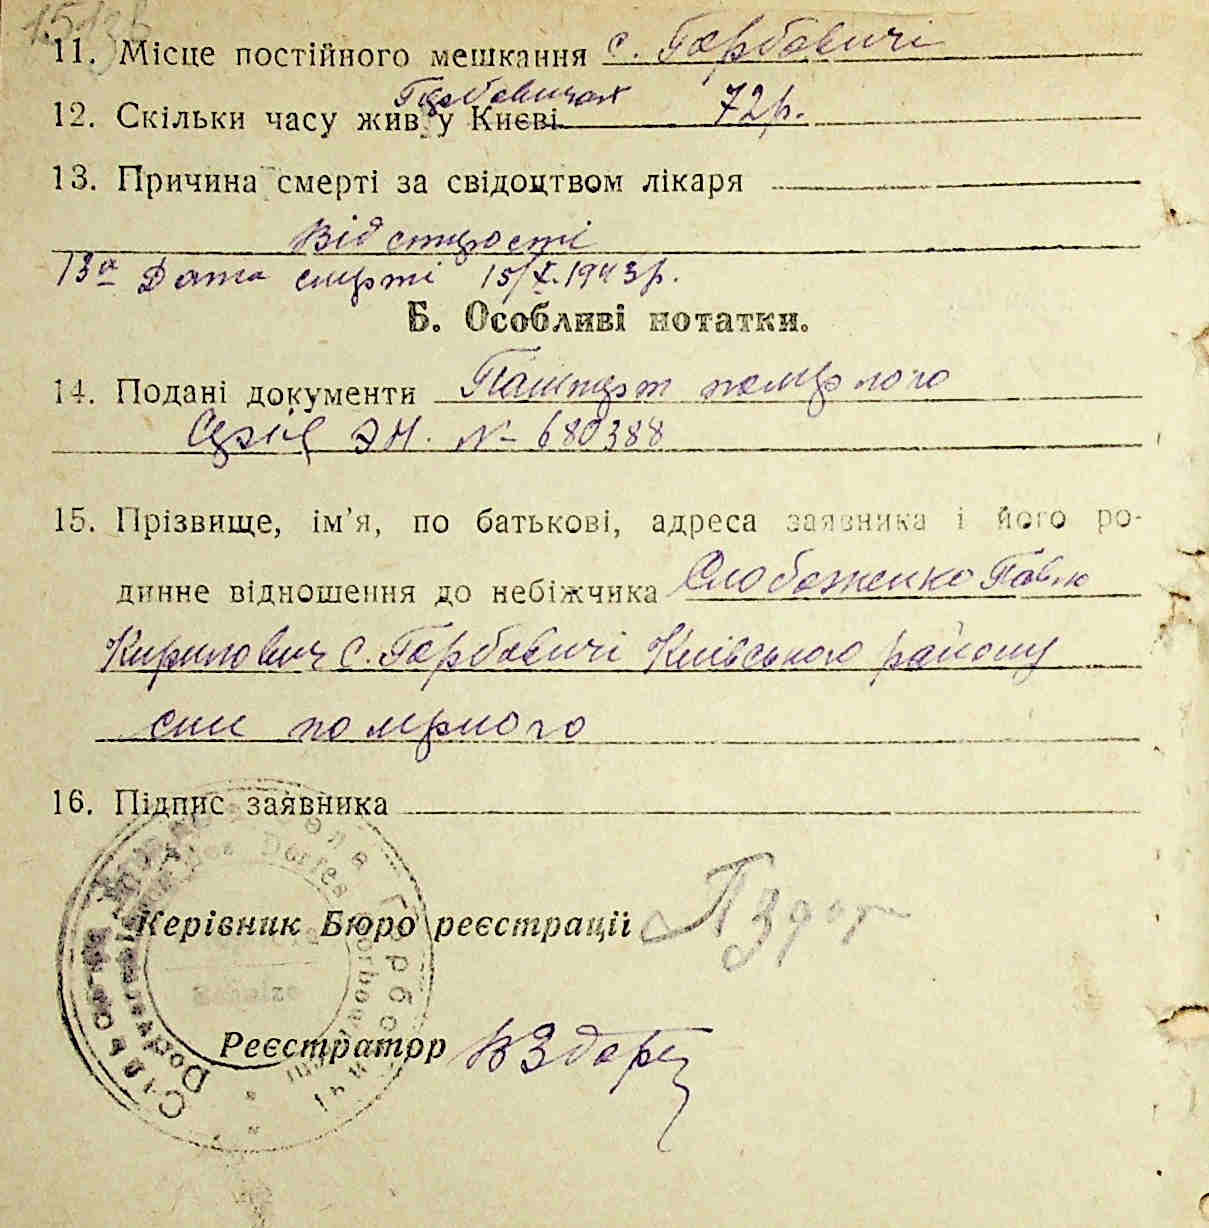 11. Місце постійного мешкання с. Горбовичі
Горбовичах
12. Скільки часу жив у Києві 72 р.
13. Причина смерті за свідоцтвом лікаря
Від старости
13а Дата смерті 15/X. 1943 р.
Б. Особливі нотатки.
14. Подані документи Пашпорт померлого
Серія ЭН. № 680388
15. Прізвище, ім'я, по батькові, адреса заявника і його ро-
динне відношення до небіжчика Слободженко Павло
Кирилович с. Горбовичі Київського району
син померлого
16. Підпис заявника
Керівник Бюро реєстрації
Реєстратор